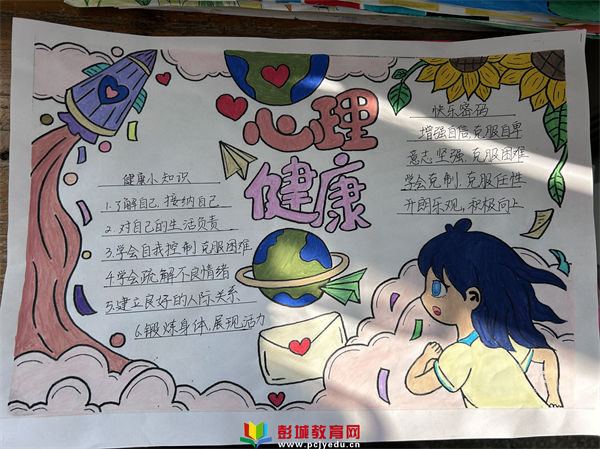 心理
健康
健康小知识
1.了解自己,接纳自己
2.对自己的生活负责
3.学会自我控制克服困难
4.学会疏解不良情绪
5.建立良好的人际关系
6.锻炼身体,展现活力
快乐密码
增强自信,克服自卑
意志坚强,克服困难
学会克制,克服任性
开朗乐观,积极向上
彭城教育网
www.pcjyedu.cn